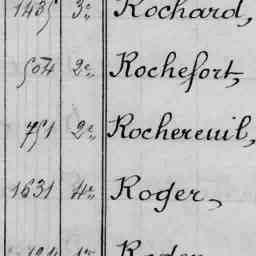 1435 3e. Rochard,
504 2e. Rochefort,
751 2e. Rochereuil,
1631 4e. Roger,
Roger